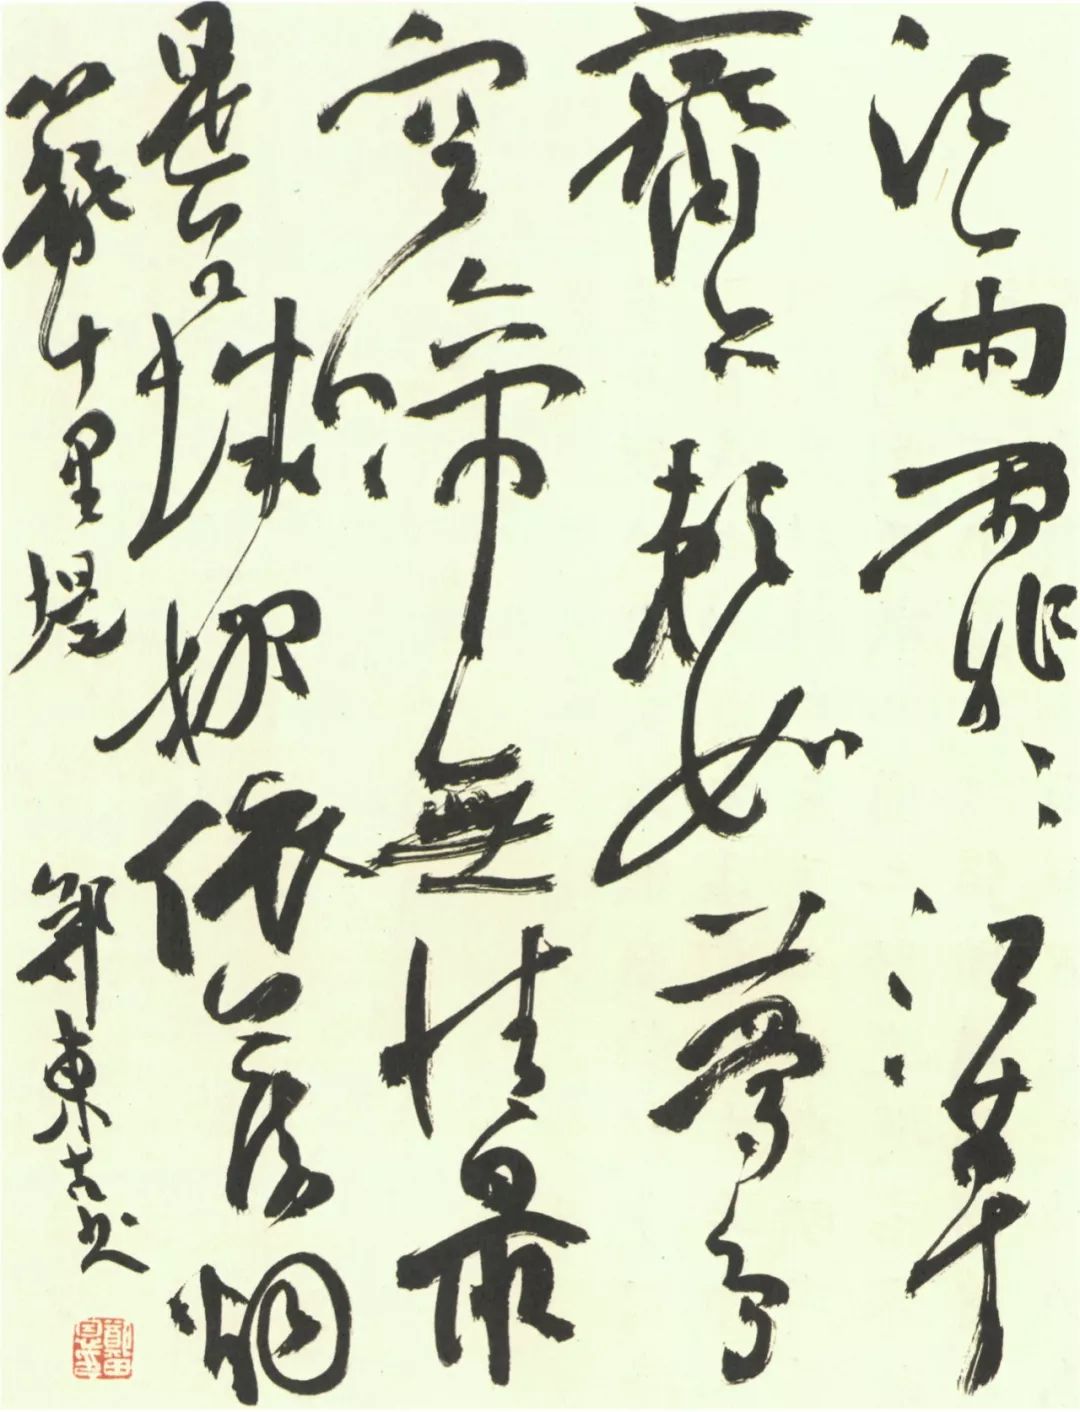 江雨霏〻江草
齊六朝如夢鳥
空啼無情最
是台城柳依舊烟
籠十里堤
東古书